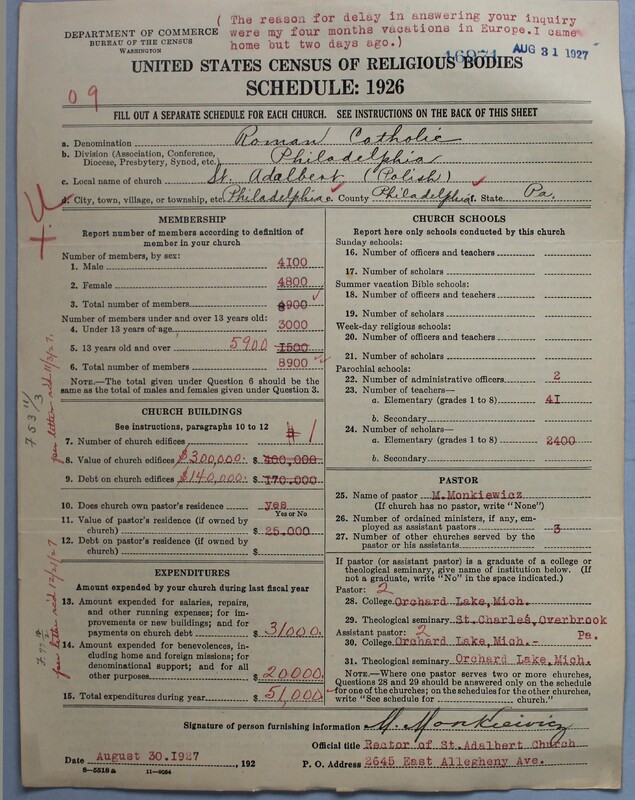 ( The reason for delay in answering your inquiry
were my four months vacations in Europe.I came
home but two days ago.)
DEPARTMENT OF COMMERCE
BUREAU OF THE CENSUS
WASHINGTON
AUG 31 1927
UNITED STATES CENSUS OF RELIGIOUS BODIES
SCHEDULE: 1926
09
FILL OUT A SEPARATE SCHEDULE FOR EACH CHURCH. SEE INSTRUCTIONS ON THE BACK OF THIS SHEET
a. Denomination Roman Catholic
b. Division (Association, Conference, Diocese, Presbytery, Synod, etc.) Philadelphia
c. Local name of church St. Adalbert (Polish)
d. City, town, village, or township, etc. Philadelphia e. County Philadelphia f. State Pa.
MEMBERSHIP
Report number of members according to definition of
member in your church
Number of members, by sex:
1. Male 4100
2. Female 4800
3. Total number of members 8900
Number of members under and over 13 years old:
4. Under 13 years of age 3000
5. 13 years old and over 5900 1500
6. Total number of members 8900
NOTE.—The total given under Question 6 should be the
same as the total of males and females given under Question 3.
CHURCH BUILDINGS
See instructions, paragraphs 10 to 12
7. Number of church edifices 1
8. Value of church edifices $300,000. $ 400,000
9. Debt on church edifices $140,000. $ 170.000
10. Does church own pastor's residence yes
Yes or No
11. Value of pastor's residence (if owned by
church) $ 25.000
12. Debt on pastor's residence (if owned by
church) $
EXPENDITURES
Amount expended by your church during last fiscal year
13. Amount expended for salaries, repairs,
and other running expenses; for im-
provements or new buildings; and for
payments on church debt $ 31000.
14. Amount expended for benevolences,
including home and foreign missions; for
denominational support; and for all
other purposes $ 20000
15. Total expenditures during year $ 51,000
CHURCH SCHOOLS
Report here only schools conducted by this church
Sunday schools:
16. Number of officers and teachers
17. Number of scholars
Summer vacation Bible schools:
18. Number of officers and teachers
19. Number of scholars
Week-day religious schools:
20. Number of officers and teachers
21. Number of scholars
Parochial schools:
22. Number of administrative officers 2
23. Number of teachers—
a. Elementary (grades 1 to 8) 41
b. Secondary
24. Number of scholars—
a. Elementary (grades 1 to 8) 2400
b. Secondary
PASTOR
25. Name of pastor M.Monkiewicz
(If church has no pastor, write "None")
26. Number of ordained ministers, if any, em-
ployed as assistant pastors 3
27. Number of other churches served by the
pastor or his assistants
If pastor (or assistant pastor) is a graduate of a college or
theological seminary, give name of institution below. (If
not a graduate, write "No" in the space indicated.)
Pastor: 2
28. College Orchard Lake,Mich.
29. Theological seminary St.Charles,Overbrook
Pa.
Assistant pastor: 2
30. College Orchard Lake,Mich.-
31. Theological seminary Orchard Lake,Mich.
NOTE.—Where one pastor serves two or more churches,
Questions 28 and 29 should be answered only on the schedule
for one of the churches; on the schedules for the other churches,
write "See schedule for church."
Signature of person furnishing information M. Monkiewicz
Official title Rector of St.Adalbert Church
Date August 30.1927 , 192
P. O. Address 2645 East Allegheny Ave.
8—5518a 11—9054